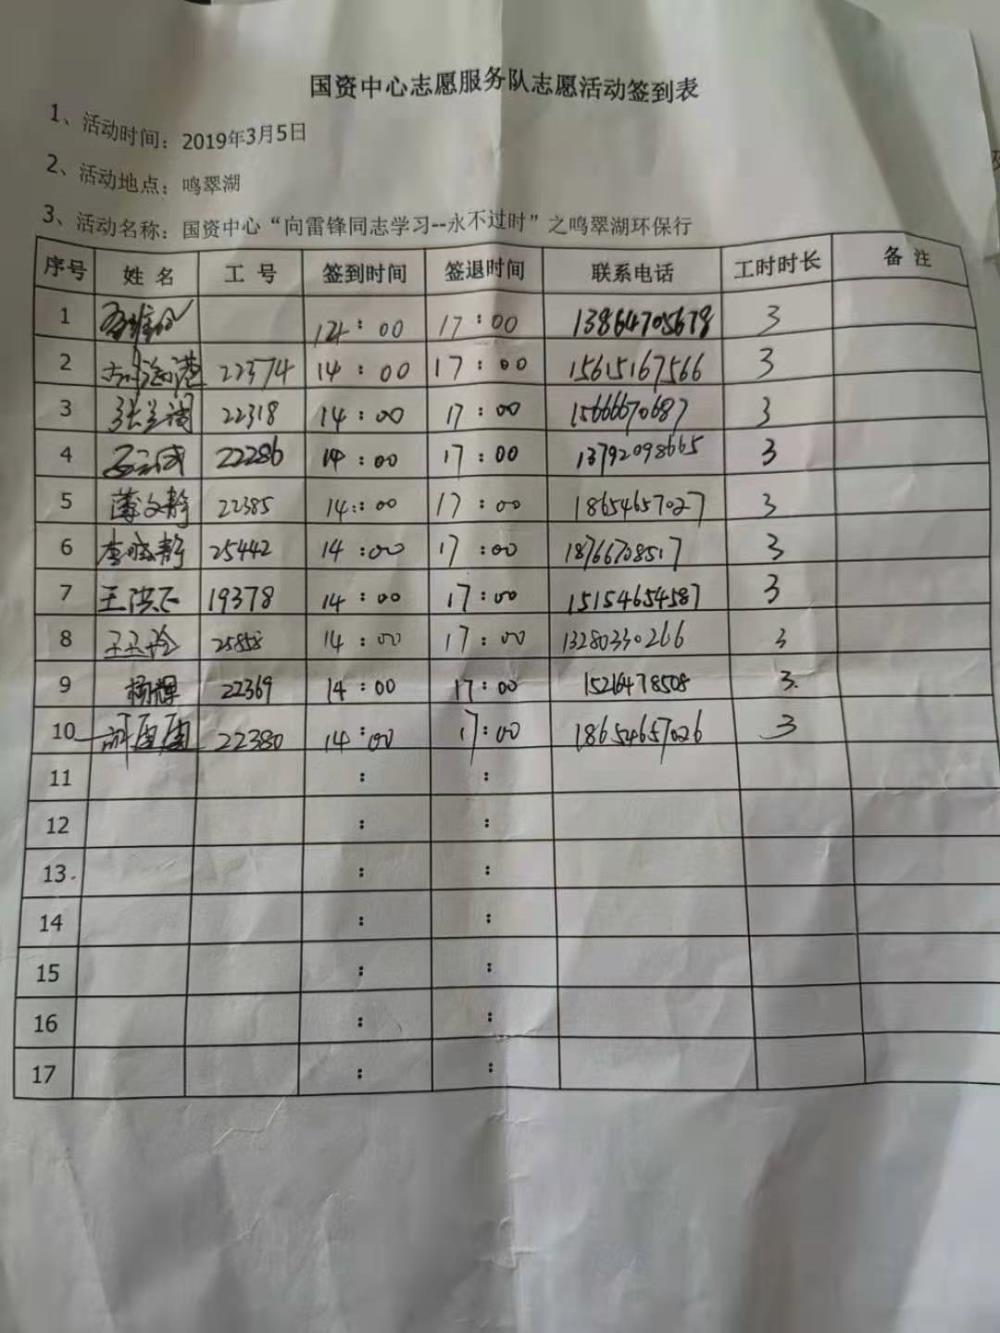 国资中心志愿服务队志愿活动签到表
1、活动时间：2019年3月5日
2、活动地点：鸣翠湖
3、活动名称：国资中心“向雷锋同志学习--永不过时”之鸣翠湖环保行
序号 姓名 工号 签到时间 签退时间 联系电话 工时时长 备注
1 14：00 17：00 13864705678 3
2 22374 14：00 17：00 15615167566 3
3 22318 14：00 17：00 15666670687 3
4 22286 14：00 17：00 13792098665 3
5 薄文静 22385 14：00 17：00 18654657027 3
6 李晓静 25442 14：00 17：00 18766708517 3
7 19378 14：00 17：00 15154654587 3
8 25858 14：00 17：00 13280330266 3
9 杨辉 22369 14：00 17：00 15216478508 3
10 22380 14：00 17：00 18654657026 3
11 ： ：
12 ： ：
13 ： ：
14 ： ：
15 ： ：
16 ： ：
17 ： ：